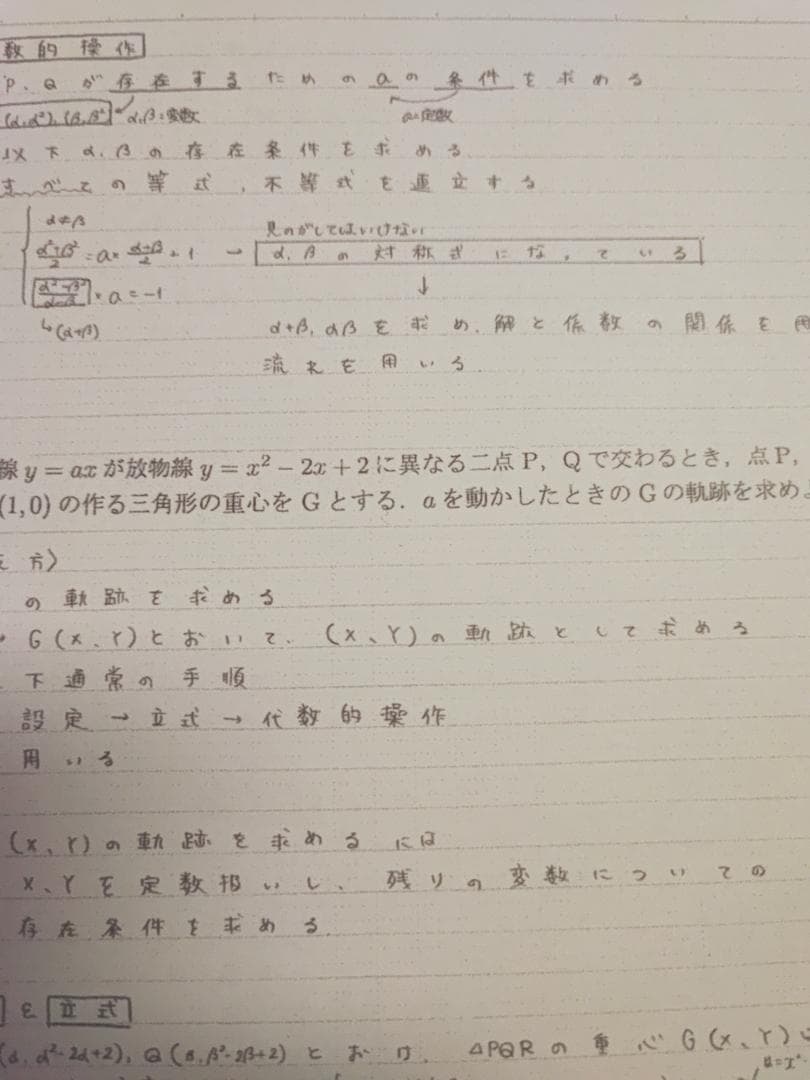 数的操作
P、Qが存在するためのaの条件を求める
(α,α²),(β,β²) α,β=変数 a=定数
以下α,βの存在条件を求める
すべての等式,不等式を連立する
α≠β
見のがしてはいけない
α²+β²/2=a×α+β/2+1 → α,βの対称式になっている
α²-β²/α-β×a=-1 ↓
↳(α+β) α+β,αβを求め,解と係数の関係を用
流れを用いる
線 y=ax が放物線 y=x²−2x+2 に異なる二点 P,Q で交わるとき,点 P,
(1,0) の作る三角形の重心を G とする.a を動かしたときの G の軌跡を求めよ
方〉
の軌跡を求める
G(X、Y)とおいて、(X、Y)の軌跡として求める
下通常の手順
設定→立式→代数的操作
用いる
(X、Y)の軌跡を求めるには
X、Yを定数扱いし、残りの変数についての
存在条件を求める
と 立式
α²-2α+2),Q(β,β²-2β+2)とおけ、△PQRの重心G(X、Y)